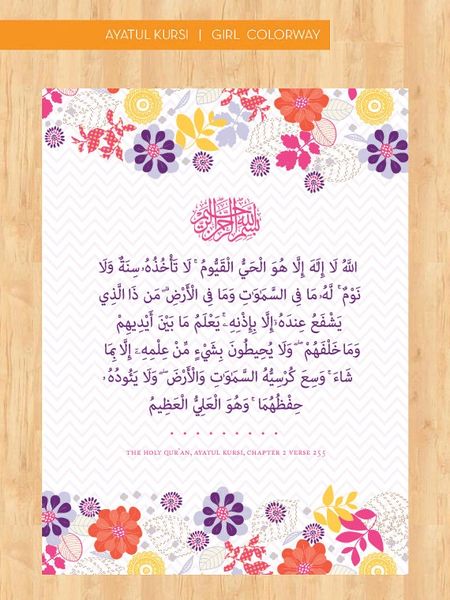 AYATUL KURSI | GIRL COLORWAY
بسم الله الرحمن الرحيم
اللَّهُ لَا إِلَٰهَ إِلَّا هُوَ الْحَيُّ الْقَيُّومُ ۚ لَا تَأْخُذُهُۥ سِنَةٌ وَلَا
نَوْمٌ ۚ لَّهُۥ مَا فِى السَّمَٰوَٰتِ وَمَا فِى الْأَرْضِ ۗ مَن ذَا الَّذِي
يَشْفَعُ عِندَهُۥٓ إِلَّا بِإِذْنِهِۦ ۚ يَعْلَمُ مَا بَيْنَ أَيْدِيهِمْ
وَمَا خَلْفَهُمْ ۖ وَلَا يُحِيطُونَ بِشَيْءٍ مِّنْ عِلْمِهِۦٓ إِلَّا بِمَا
شَاءَ ۚ وَسِعَ كُرْسِيُّهُ السَّمَٰوَٰتِ وَالْأَرْضَ ۖ وَلَا يَئُودُهُۥ
حِفْظُهُمَا ۚ وَهُوَ الْعَلِيُّ الْعَظِيمُ
THE HOLY QUR'AN, AYATUL KURSI, CHAPTER 2 VERSE 255